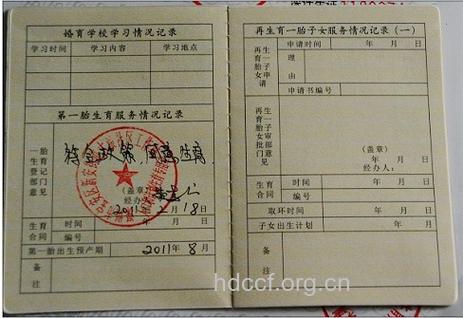 婚育学校学习情况记录
学习时间 学习内容 学习地点
第一胎生育服务情况记录
一胎生育登记部门意见
符合政策,同意生育
(盖章)
经办人
2011 月18日
生育合同 时间 年 月 日
编号
第一胎出生预产期 2011年8月
备注
再生育一胎子女服务情况记录(一)
再生育一胎子女申请
申请时间 年 月 日
理由
申请书编号
再生育一胎子女审批部门意见
(盖章)
年 月 日
经办人:
生育合同 时间 年 月 日
编号
取环时间 年 月 日
子女出生计划 年 月 日
备注
hdccf.org.cn